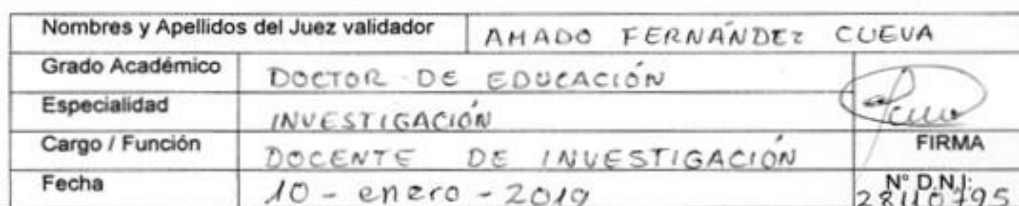 Nombres y Apellidos del Juez validador AMADO FERNÁNDEZ CUEVA
Grado Académico DOCTOR DE EDUCACIÓN
Especialidad INVESTIGACIÓN
Cargo / Función DOCENTE DE INVESTIGACIÓN FIRMA
Fecha 10 - enero - 2019 N° D.N.I:
28110795